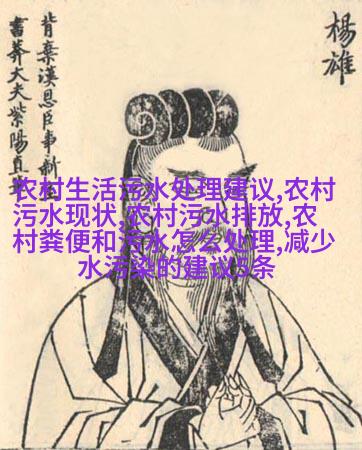 楊雄
背棄漢恩臣事新
書莽大夫紫陽直
农村生活污水处理建议,农村
污水现状,农村污水排放,农
村粪便和污水怎么处理,减少
水污染的建议5条